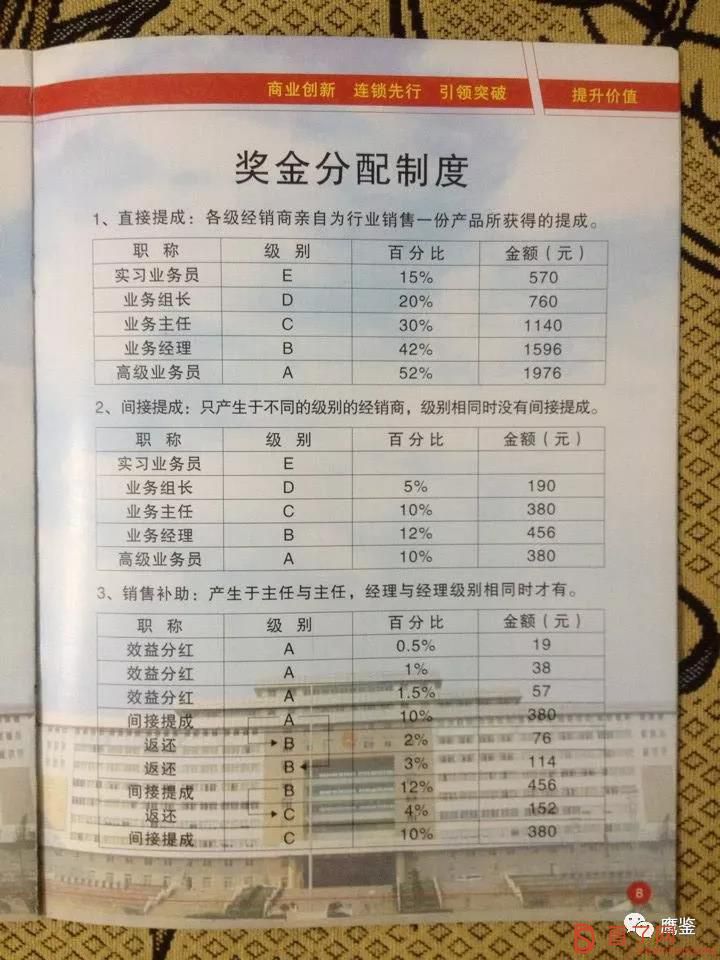 商业创新 连锁先行 引领突破 提升价值
奖金分配制度
1、直接提成：各级经销商亲自为行业销售一份产品所获得的提成。
职 称 级 别 百分比 金额（元）
实习业务员 E 15% 570
业务组长 D 20% 760
业务主任 C 30% 1140
业务经理 B 42% 1596
高级业务员 A 52% 1976
2、间接提成：只产生于不同的级别的经销商，级别相同时没有间接提成。
职 称 级 别 百分比 金额（元）
实习业务员 E
业务组长 D 5% 190
业务主任 C 10% 380
业务经理 B 12% 456
高级业务员 A 10% 380
3、销售补助：产生于主任与主任，经理与经理级别相同时才有。
职 称 级 别 百分比 金额（元）
效益分红 A 0.5% 19
效益分红 A 1% 38
效益分红 A 1.5% 57
间接提成 A 10% 380
返还 B 2% 76
返还 B 3% 114
间接提成 B 12% 456
返还 C 4% 152
间接提成 C 10% 380
8
鹰鉴